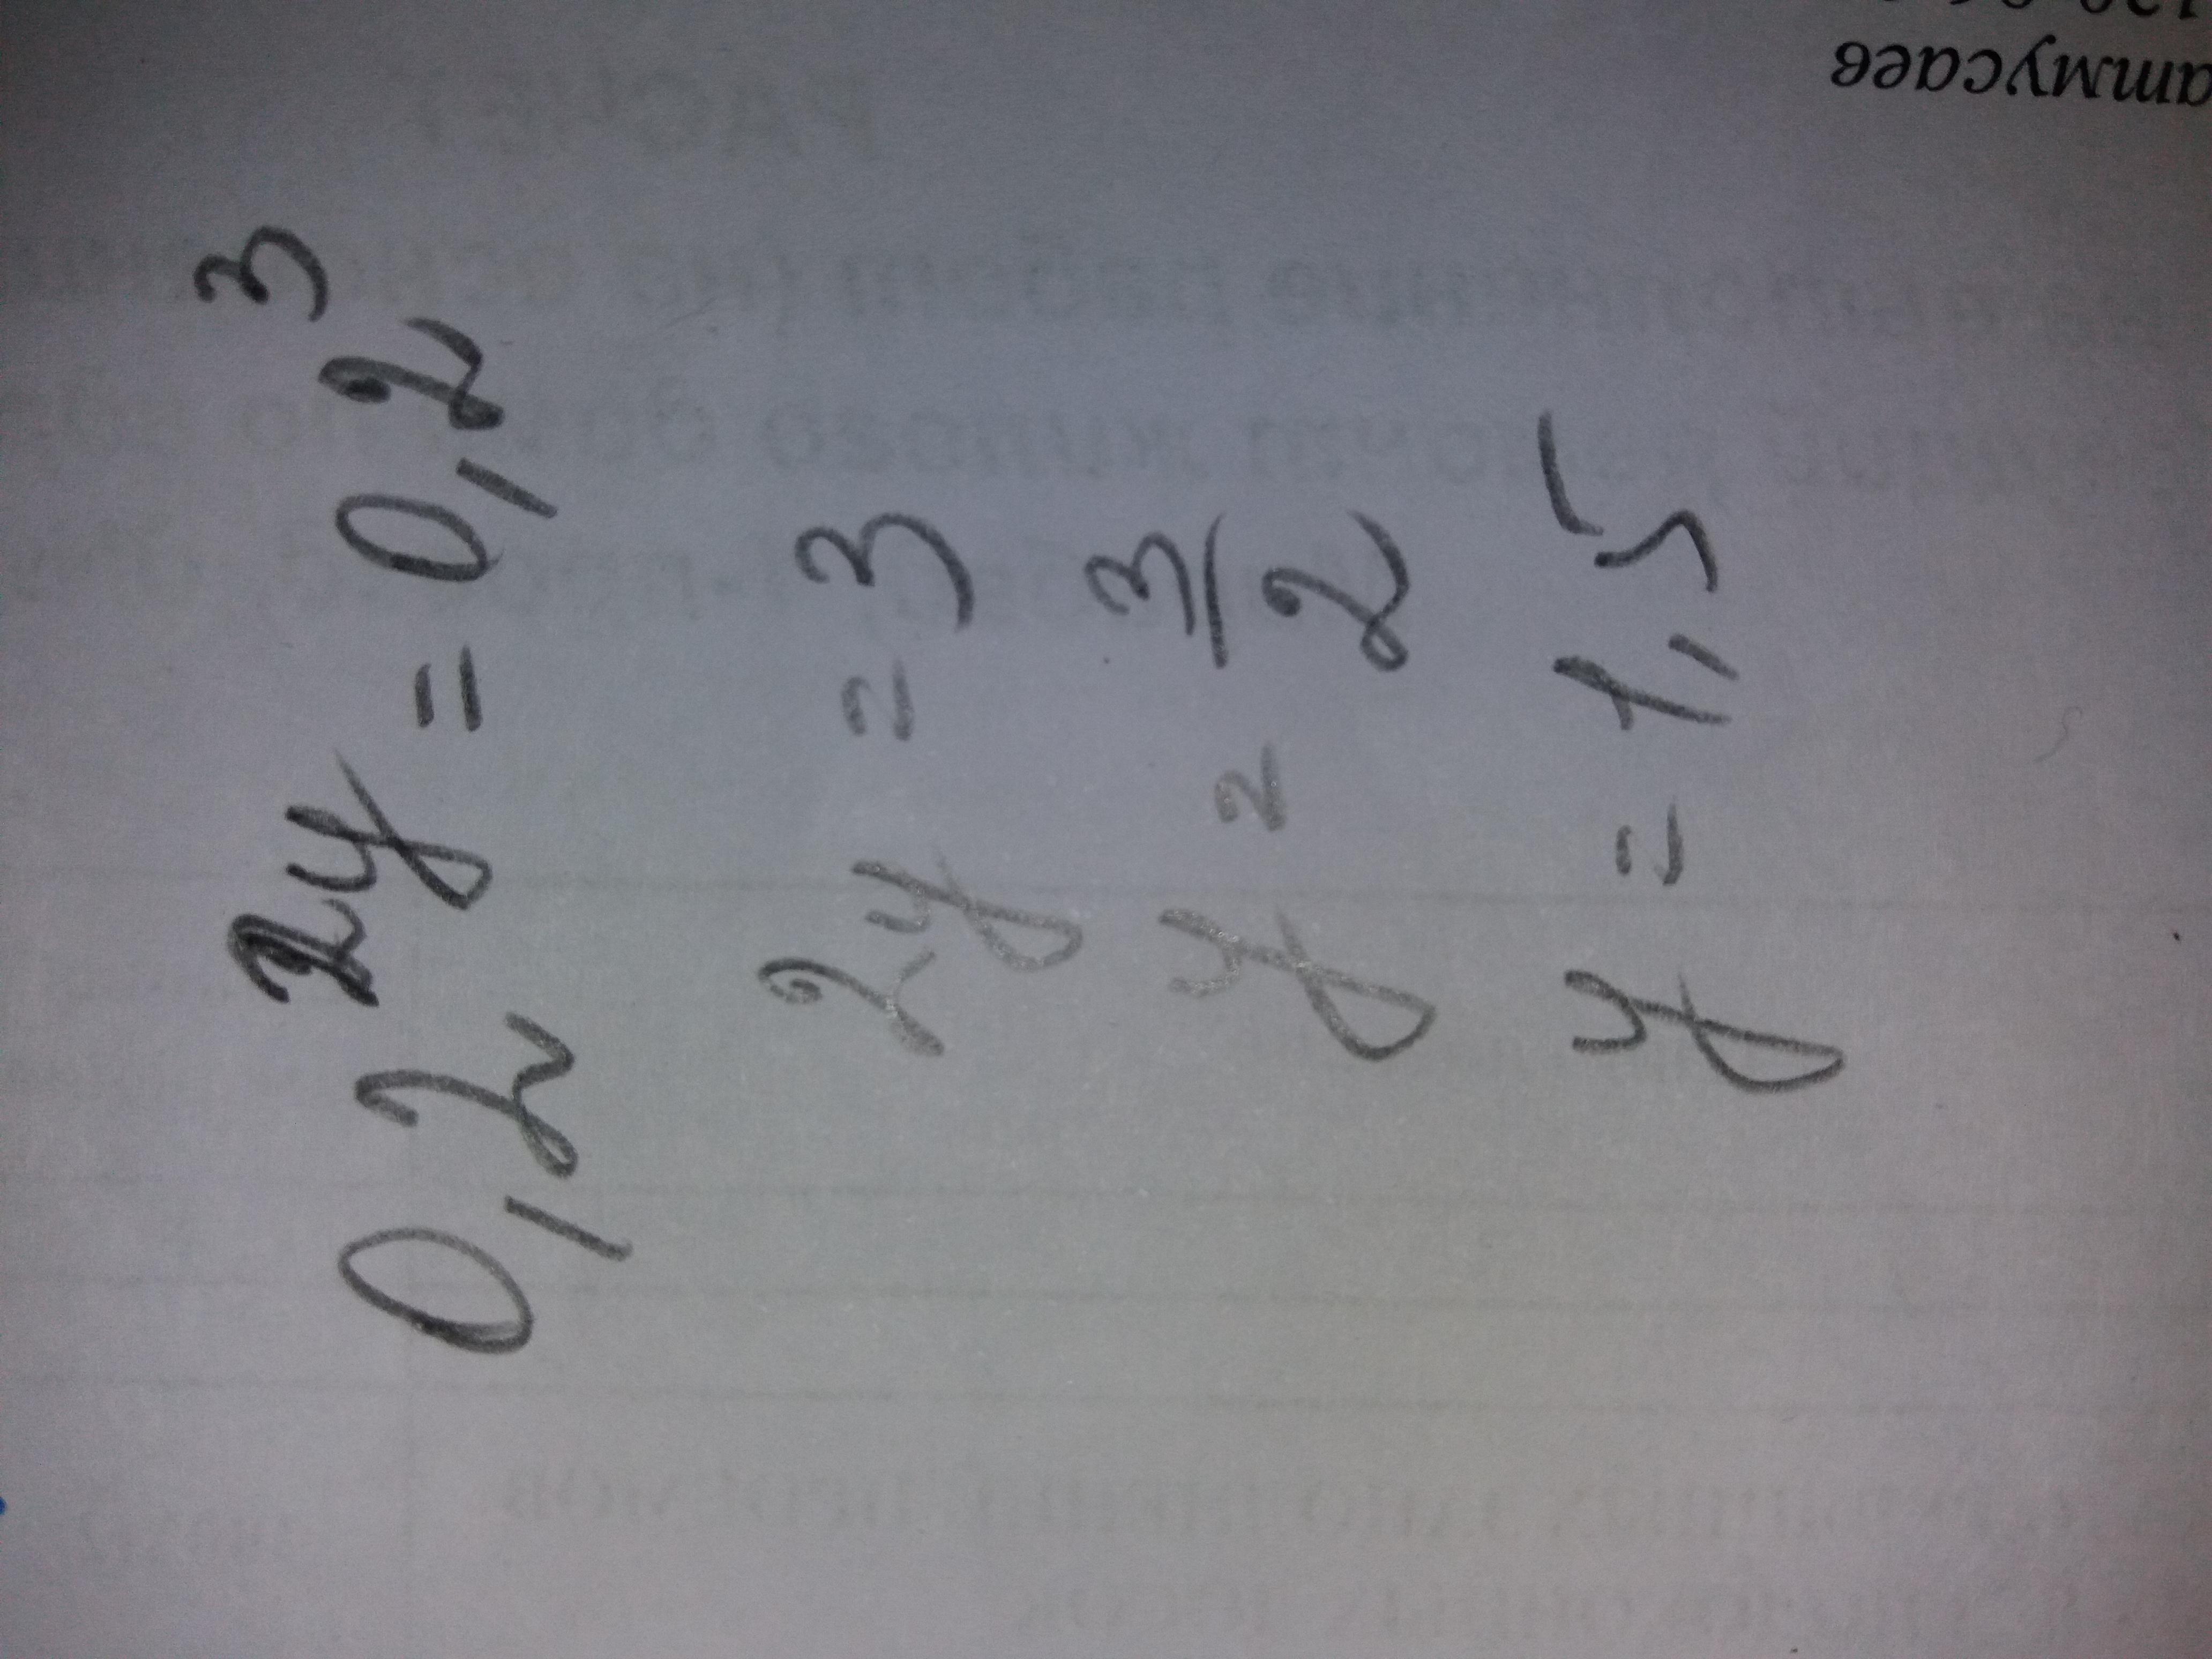 0,2^{2y} = 0,2^3
2y = 3
y = 3/2
y = 1,5
аттусаев